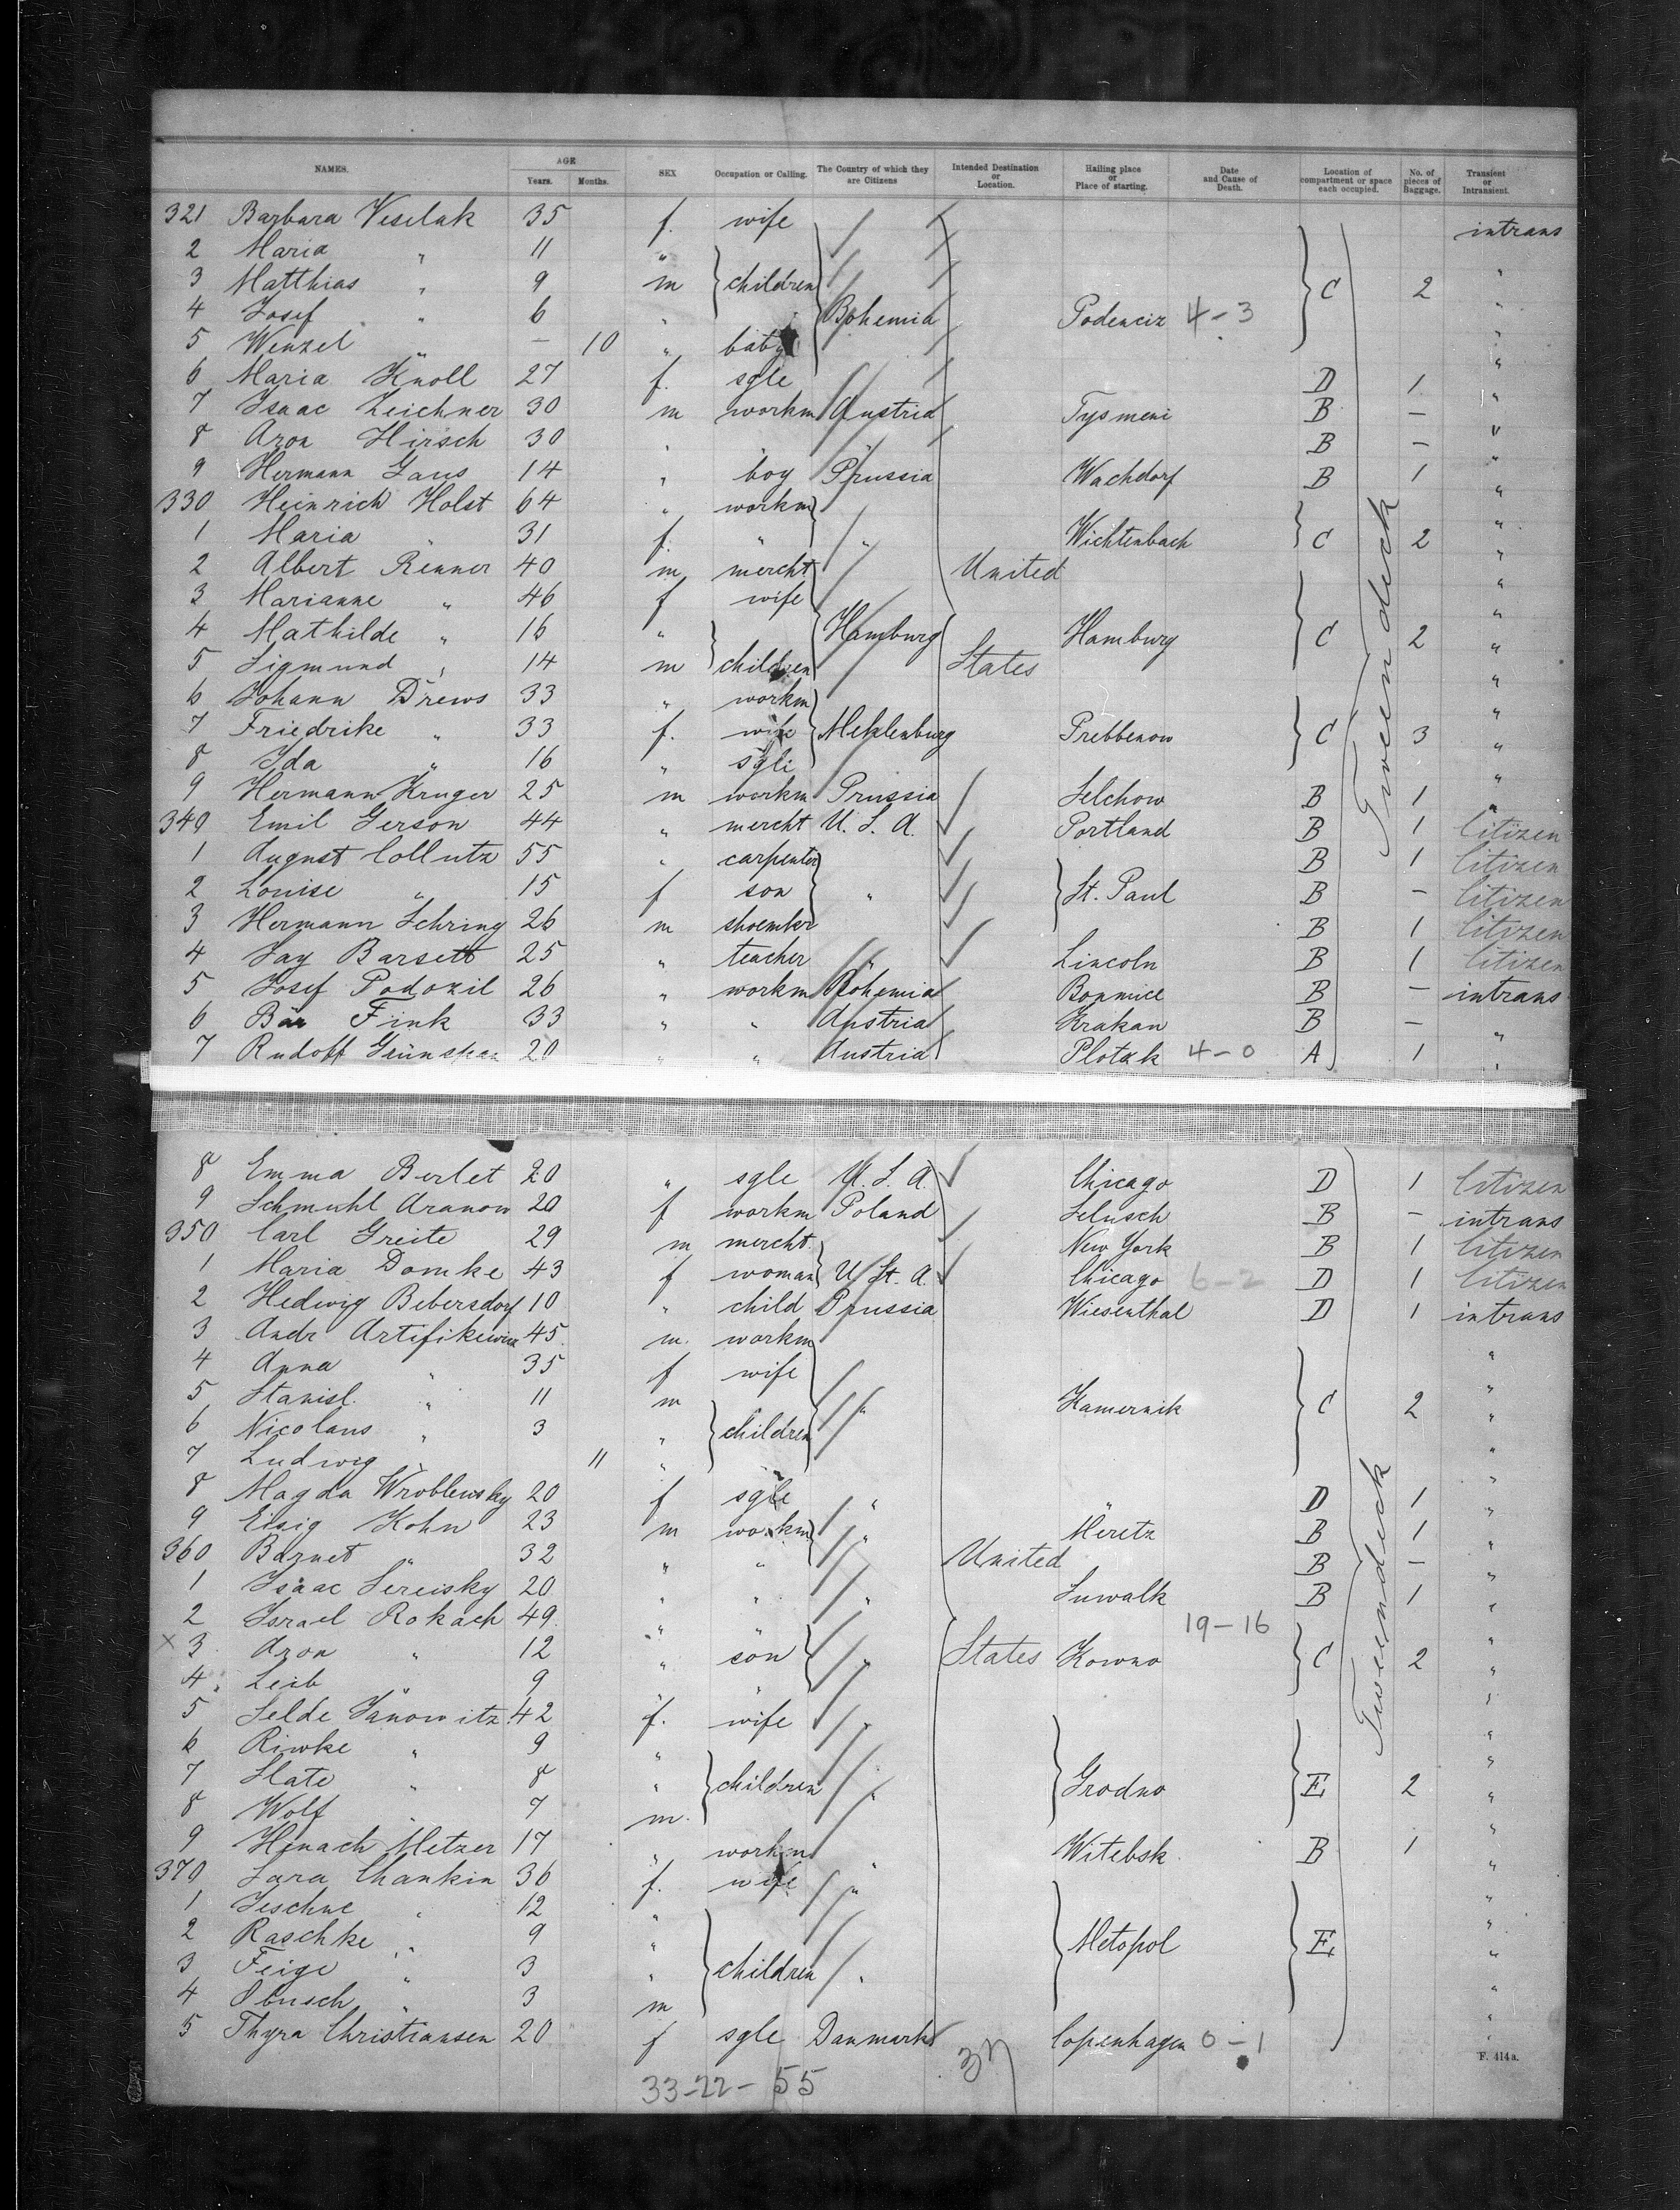 NAMES. AGE Years. Months. SEX Occupation or Calling. The Country of which they are Citizens Intended Destination or Location. Hailing place or Place of starting. Date and Cause of Death. Location of compartment or space each occupied. No. of pieces of Baggage. Transient or Intransient.
321 Barbara Veselak 35 f. wife intrans
2 Maria " 11 "
3 Matthias " 9 m children C 2 "
4 Josef " 6 " Bohemia 4-3 "
5 Wenzel " - 10 " baby "
6 Maria Knoll 27 f. sgle D 1 "
7 Isaac Zeichner 30 m workm Austria Tysmeni B - "
8 Aron Hirsch 30 " " B - "
9 Hermann Gans 14 " boy Prussia Wachdorf B 1 "
330 Heinrich Holst 64 " workm "
1 Maria " 31 f. " " Wichtenbach C 2 "
2 Albert Renner 40 m mercht United "
3 Marianne " 46 f wife "
4 Mathilde " 16 " Hamburg Hamburg C 2 "
5 Sigmund " 14 m children States "
6 Johann Drews 33 " workm "
7 Friedrike " 33 f. wife Meklenburg Prebbenow C 3 "
8 Ida " 16 " sgle "
9 Hermann Kruger 25 m workm Prussia Selchow B 1 "
340 Emil Gerson 44 " mercht U. S. A. Portland B 1 Citizen
1 August Collutz 55 " carpenter B 1 Citizen
2 Louise " 15 f son " St. Paul B - Citizen
3 Hermann Sehring 26 m shoemkr B 1 Citizen
4 Jay Barsett 25 " teacher " Lincoln B 1 Citizen
5 Josef Podozil 26 " workm Bohemia B - intrans
6 Bär Fink 33 " " Austria Krakau B - "
7 Rudolf Grünspan 20 " " Austria Plotzk 4-0 A 1 "
Tweendeck
8 Emma Berlet 20 " sgle U. S. A. Chicago D 1 Citizen
9 Schmuhl Aranow 20 f workm Poland Selusch B - intrans
350 Carl Greite 29 m mercht. New York B 1 Citizen
1 Maria Domke 43 f woman U. St. A. Chicago 6-2 D 1 Citizen
2 Hedwig Bebersdorf 10 " child Prussia Wiesenthal D 1 intrans
3 Andr Artifikewicz 45 m. workm "
4 Anna " 35 f wife "
5 Stanisl. " 11 m " Kamernik C 2 "
6 Nicolaus " 3 " children "
7 Ludwig " 11 " "
8 Magda Wroblewsky 20 f sgle " " D 1 "
9 Eisig Kohn 23 m workm " Meretz B 1 "
360 Baznet " 32 " " United B - "
1 Isaac Sereisky 20 " " " Suwalk B 1 "
2 Israel Rokach 49 " " 19-16 "
x 3 Aron " 12 " son " States Kowno C 2 "
4 Leib " 9 " " "
5 Selde Janowitz 42 f. wife " "
6 Riwke " 9 " "
7 Slate " 8 " children " Grodno E 2 "
8 Wolf " 7 m. "
9 Henach Metzer 17 " workm " Witebsk B 1 "
370 Sara Chankin 36 f. wife " "
1 Jeschne " 12 " "
2 Raschke " 9 " Metopol E "
3 Feige " 3 " children " "
4 Obusch " 3 m "
5 Thyra Christiansen 20 f sgle Danmark Copenhagen 0-1 "
Tweendeck
33-22-55
F. 414a.